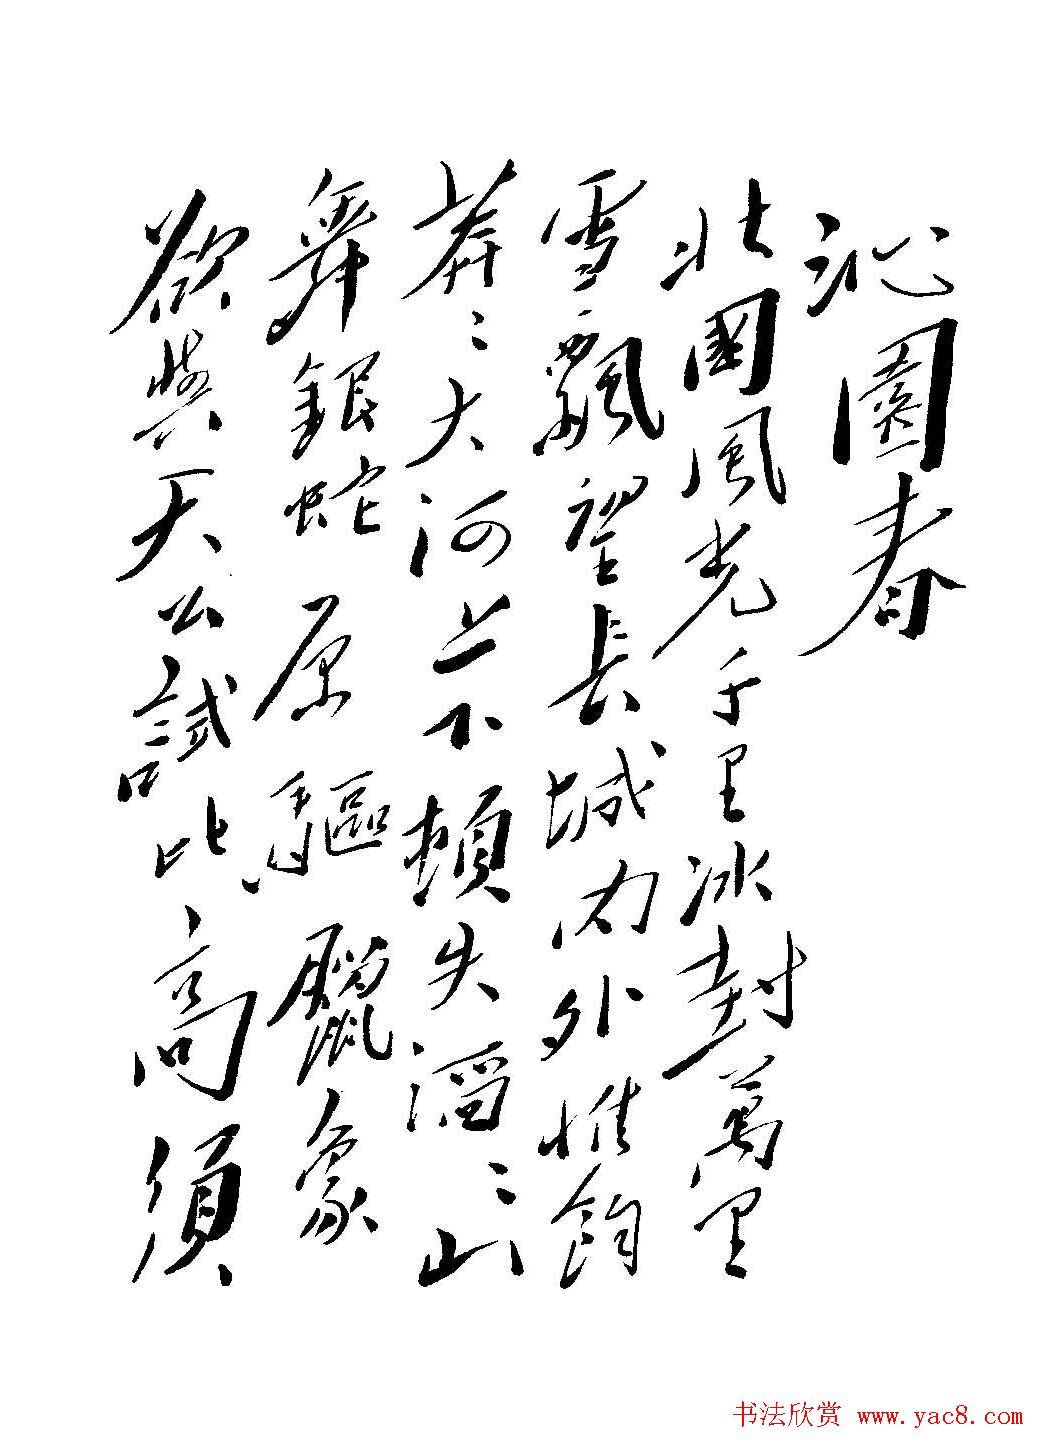 沁園春
北國風光千里冰封萬里
雪飄望長城內外惟餘
莽〻大河上下頓失滔〻山
舞銀蛇原驅臘象
欲與天公試比高須
书法欣赏 www.yac8.com